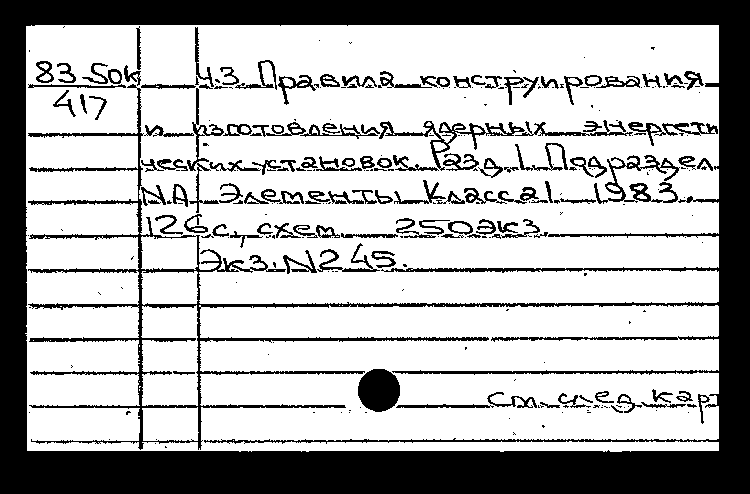 83-50к Ч.3. Правила конструирования
417
и изготовления ядерных энергети
ческих установок. Разд. 1. Подраздел
NA Элементы Класса 1. 1983.
126с., схем. 250экз.
Экз. N245.
См. след. карт